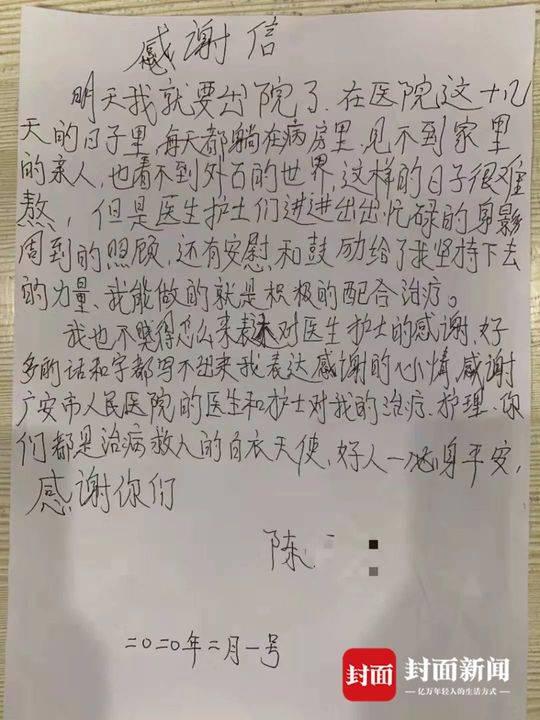 感谢信
明天我就要出院了.在医院这十几
天的日子里,每天都躺在病房里.见不到家里
的亲人,也看不到外面的世界,这样的日子很难
熬,但是医生护士们进进出出忙碌的身影
周到的照顾,还有安慰和鼓励给了我坚持下去
的力量、我能做的就是积极的配合治疗。
我也不晓得怎么来表达对医生护士的感谢,好
多的话和字都写不出来我表达感谢的心情,感谢
广安市人民医院的医生和护士对我的治疗.护理.你
们都是治病救人的白衣天使,好人一生平安,
感谢你们
陈
二0二0年二月一号
封面
封面新闻
亿万年轻人的生活方式